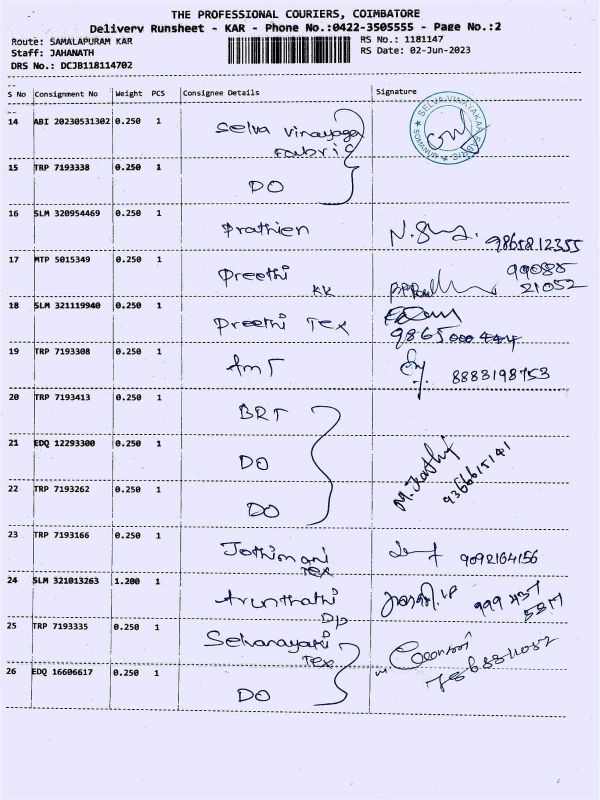 THE PROFESSIONAL COURIERS, COIMBATORE
Delivery Runsheet - KAR - Phone No.:0422-3505555 - Page No.:2
Route: SAMALAPURAM KAR
RS No.: 1181147
Staff: JAHANATH
RS Date: 02-Jun-2023
DRS No.: DCJB118114702
S No Consignment No Weight PCS Consignee Details Signature
14 ABI 20230531302 0.250 1 Selva Vinayaga
Fabric
SELVA VINAYAKAA FABRIC
SOMANUR
15 TRP 7193338 0.250 1 DO
16 SLM 320954469 0.250 1 Prathien 9865812355
17 MTP 5015349 0.250 1 Preethi KK 99088
21052
18 SLM 321119940 0.250 1 Preethi Tex
9865000444
19 TRP 7193308 0.250 1 AMT 8883198753
20 TRP 7193413 0.250 1 BRT
21 EDQ 12293300 0.250 1 DO
22 TRP 7193262 0.250 1 DO
9366615141
23 TRP 7193166 0.250 1 Jothimani
Tex
9092164156
24 SLM 321013263 1.200 1 Arunthathi
25 TRP 7193335 0.250 1
Tex
26 EDQ 16606617 0.250 1 DO